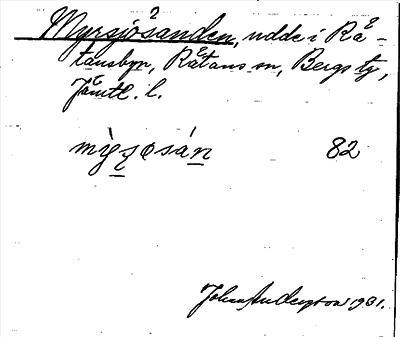 Myrsjösanden, udde i Rå-
tansbyn, Råtans sn, Bergs tg,
Jämtl. l.
mỳʒøsán 82
John Anderson 1931.